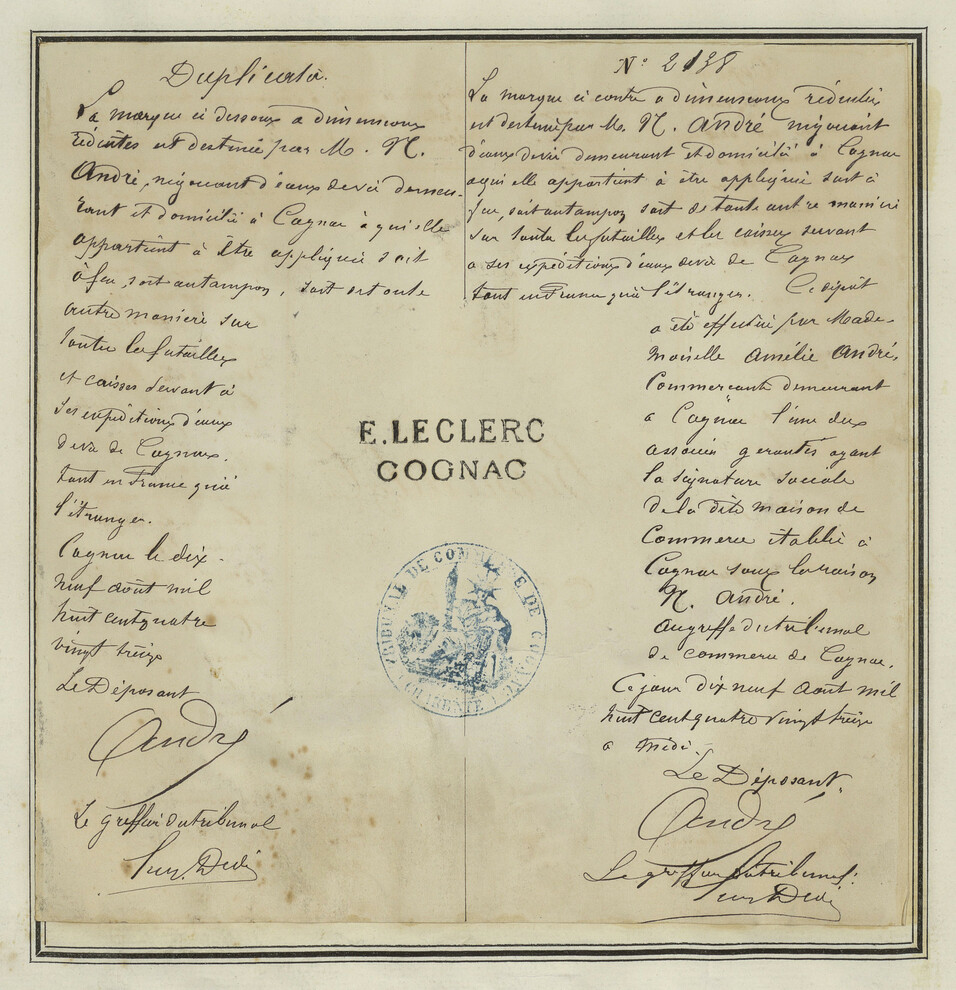 Duplicata.
La marque ci dessous a dimensions
réduites est destinée par M. N.
André, négociant d'eaux de vie demeu-
rant et domicilié à Cognac à qui elle
appartient à être appliquée soit
à feu, soit au tampon, soit de toute
autre manière sur
toutes les futailles
et caisses servant à
ses expéditions d'eaux
de vie de Cognac.
tant en France qu'à
l'étranger.
Cognac le dix-
neuf août mil
huit cent quatre
vingt treize
Le Déposant
André
Le greffier du tribunal
N° 2138
La marque ci contre a dimensions réduites
est destinée par M. N. André négociant
d'eaux de vie demeurant et domicilié à Cognac
a qui elle appartient à être appliquée soit à
feu, soit au tampon soit de toute autre manière
sur toutes les futailles et les caisses servant
a ses expéditions d'eaux de vie de Cognac
tant en France qu'à l'étranger. Ce dépôt
a été effectué par Made-
moiselle Amélie André,
Commerçante demeurant
a Cognac l'une des
associés gérantes ayant
la signature sociale
de la dite maison de
Commerce établie à
Cognac sous la raison
N. André.
au greffe du tribunal
de commerce de Cognac.
Ce jour dix neuf août mil
huit cent quatre vingt treize
a midi.
Le Déposant.
André
Le greffier du tribunal.
E. LECLERC
COGNAC
TRIBUNAL DE COMMERCE DE COGNAC
(CHARENTE)